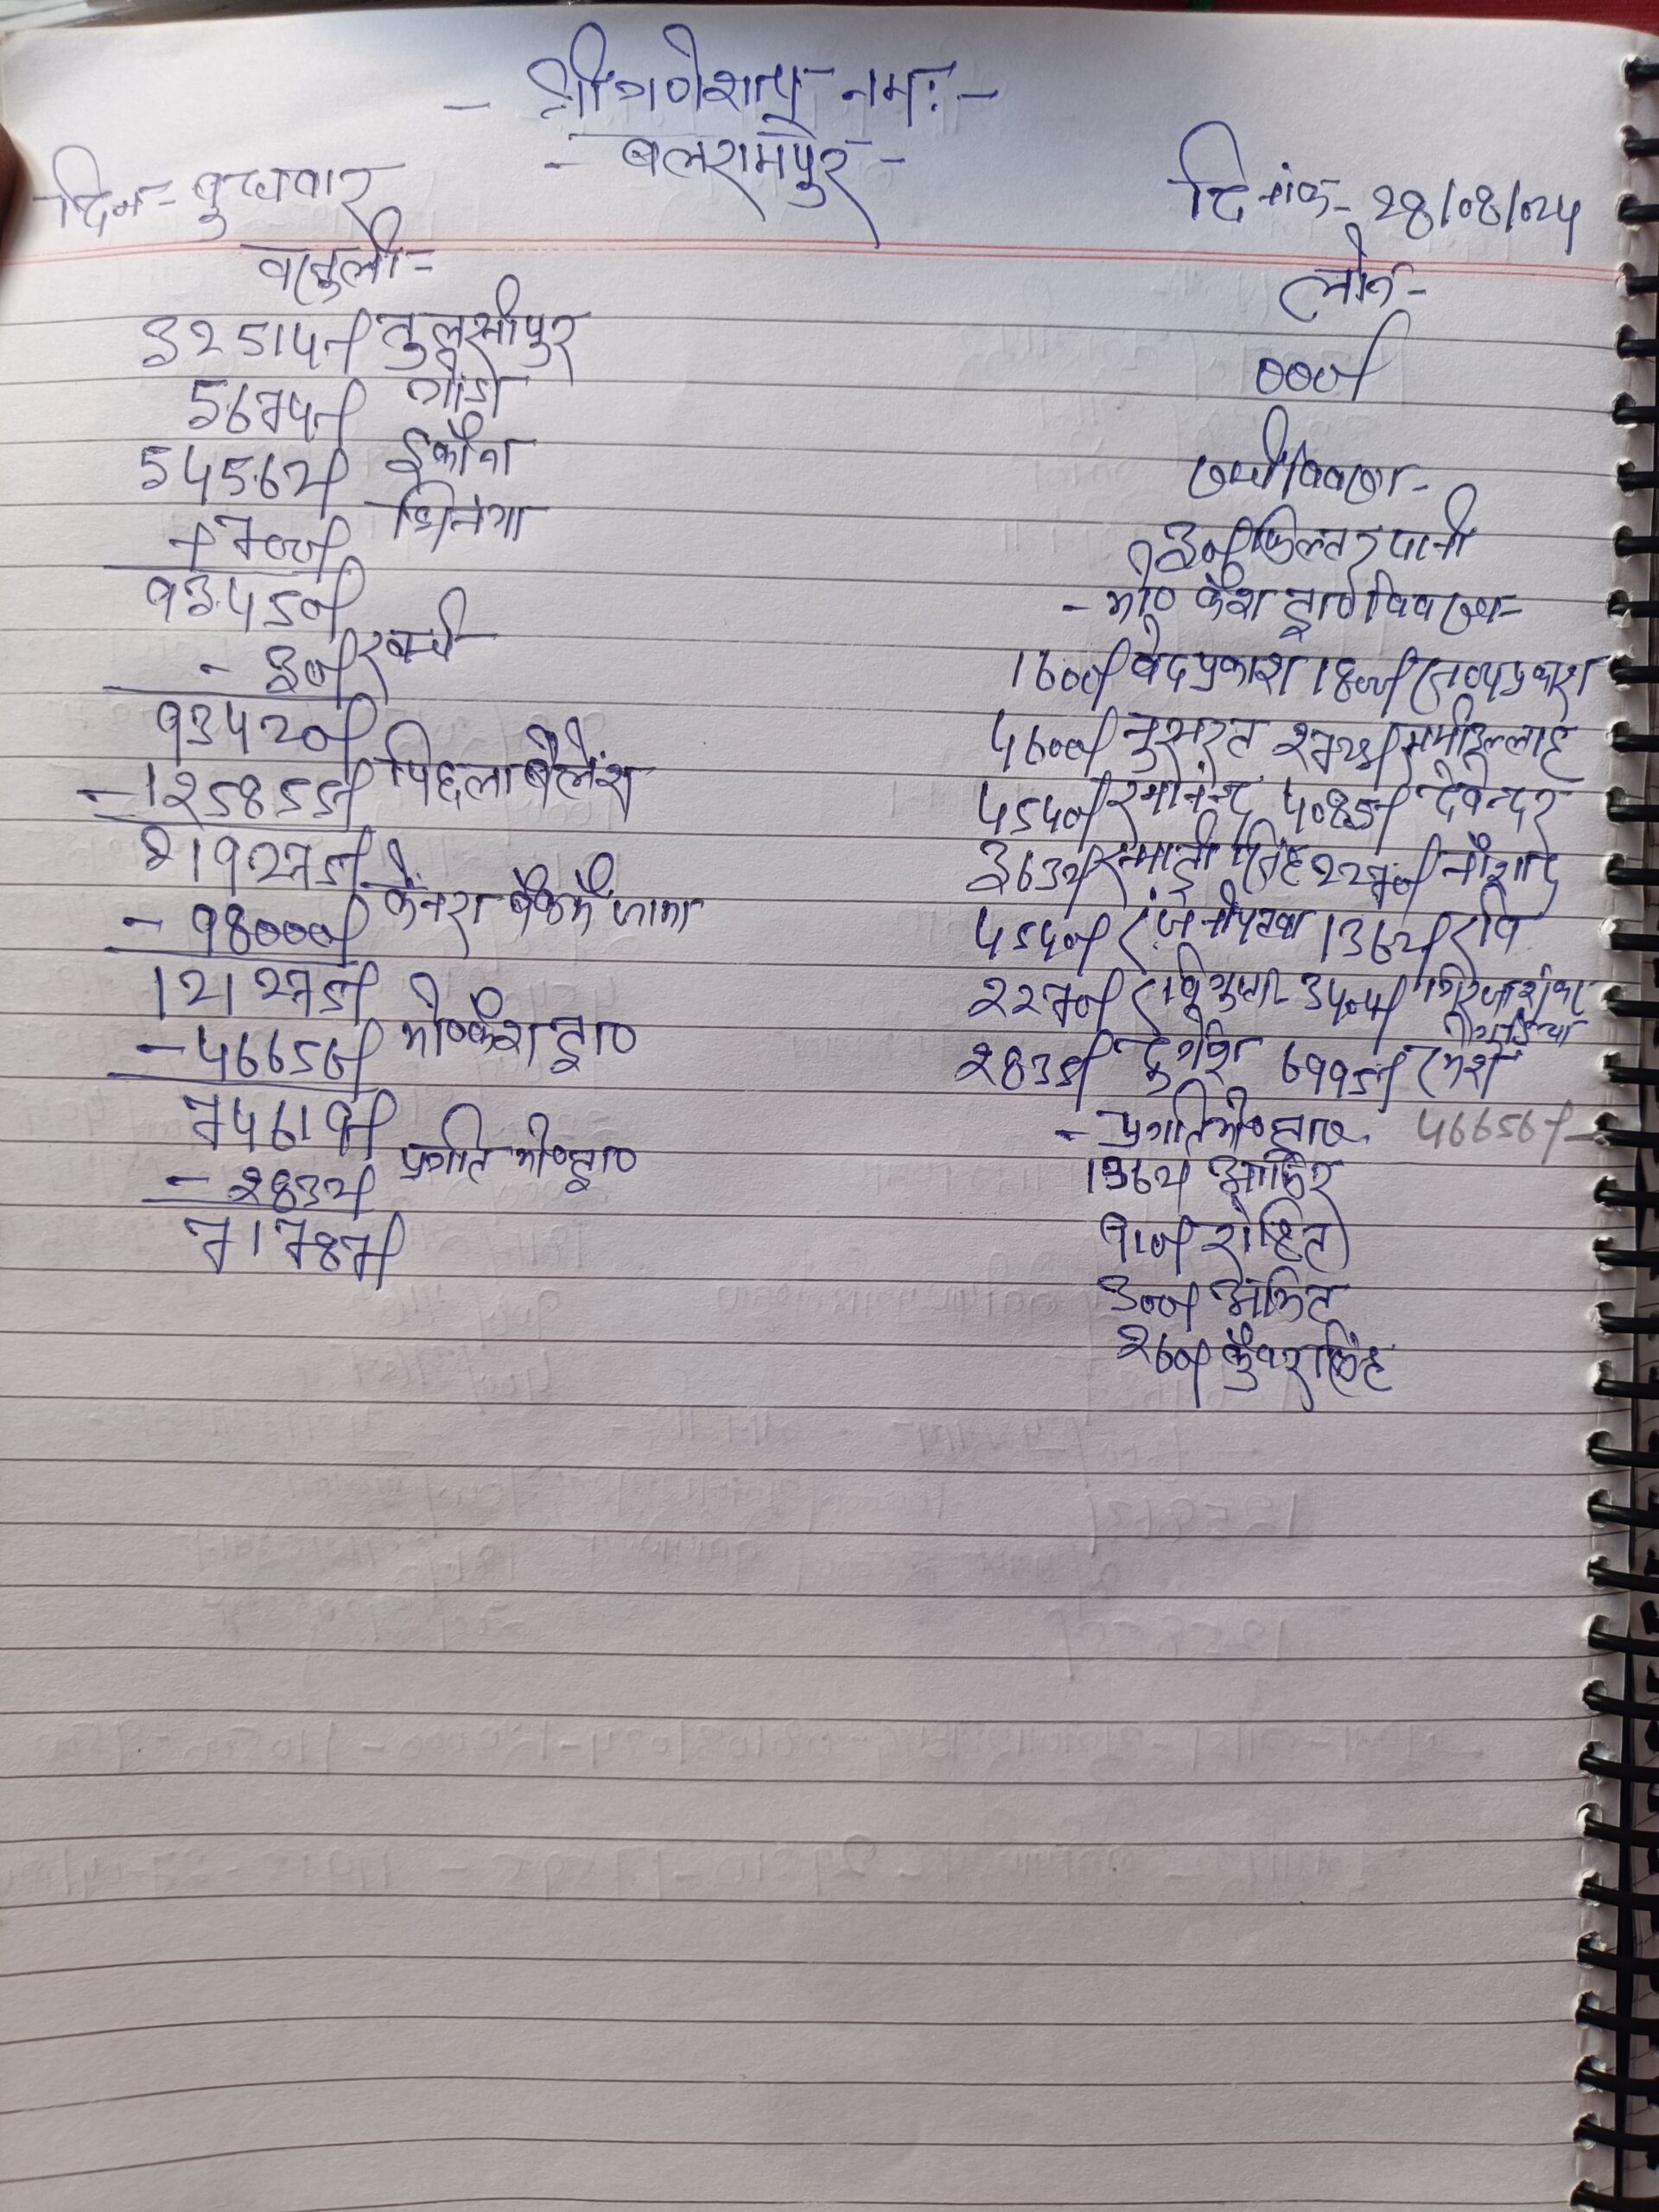 - श्री गणेशाय नमः -
- बलरामपुर -
दिन- बुधवार
दिनांक- 28/08/024
वसुली-
32514/ तुलसीपुर
5674/ गोंडा
54562/ ईकौना
+ 700/ भिनगा
93450/
- 30/ खर्चा
93420/
- 125855/ पिछला बैलेंश
219275/
- 98000/ केनरा बैंक में जमा
121275/
- 46656/ मो० कैश द्वारा
74619/
- 2832/ प्रगति मो० द्वारा
71787/
लोन-
000/
खर्चा विवरण-
30/ फिल्टर पानी
- मो० कैश द्वारा विवरण-
1600/ वेदप्रकाश 1800/ सत्यप्रकाश
4600/ नुसरत 2728/ समीउल्लाह
4540/ रमानन्द 4085/ देवेन्दर
3632/ रमाद्री सिंह 2270/ नौशाद
4540/ रंजीत 1362/ रवि
2270/ रवि गुप्ता 3404/ गिरजाशंकर
2835/ दुर्गेश 6995/ रमेश
- प्रगति मो० द्वारा. 46656/-
1362/ आमिर
910/ रोहित
300/ अंकित
260/ कुँवर सिंह